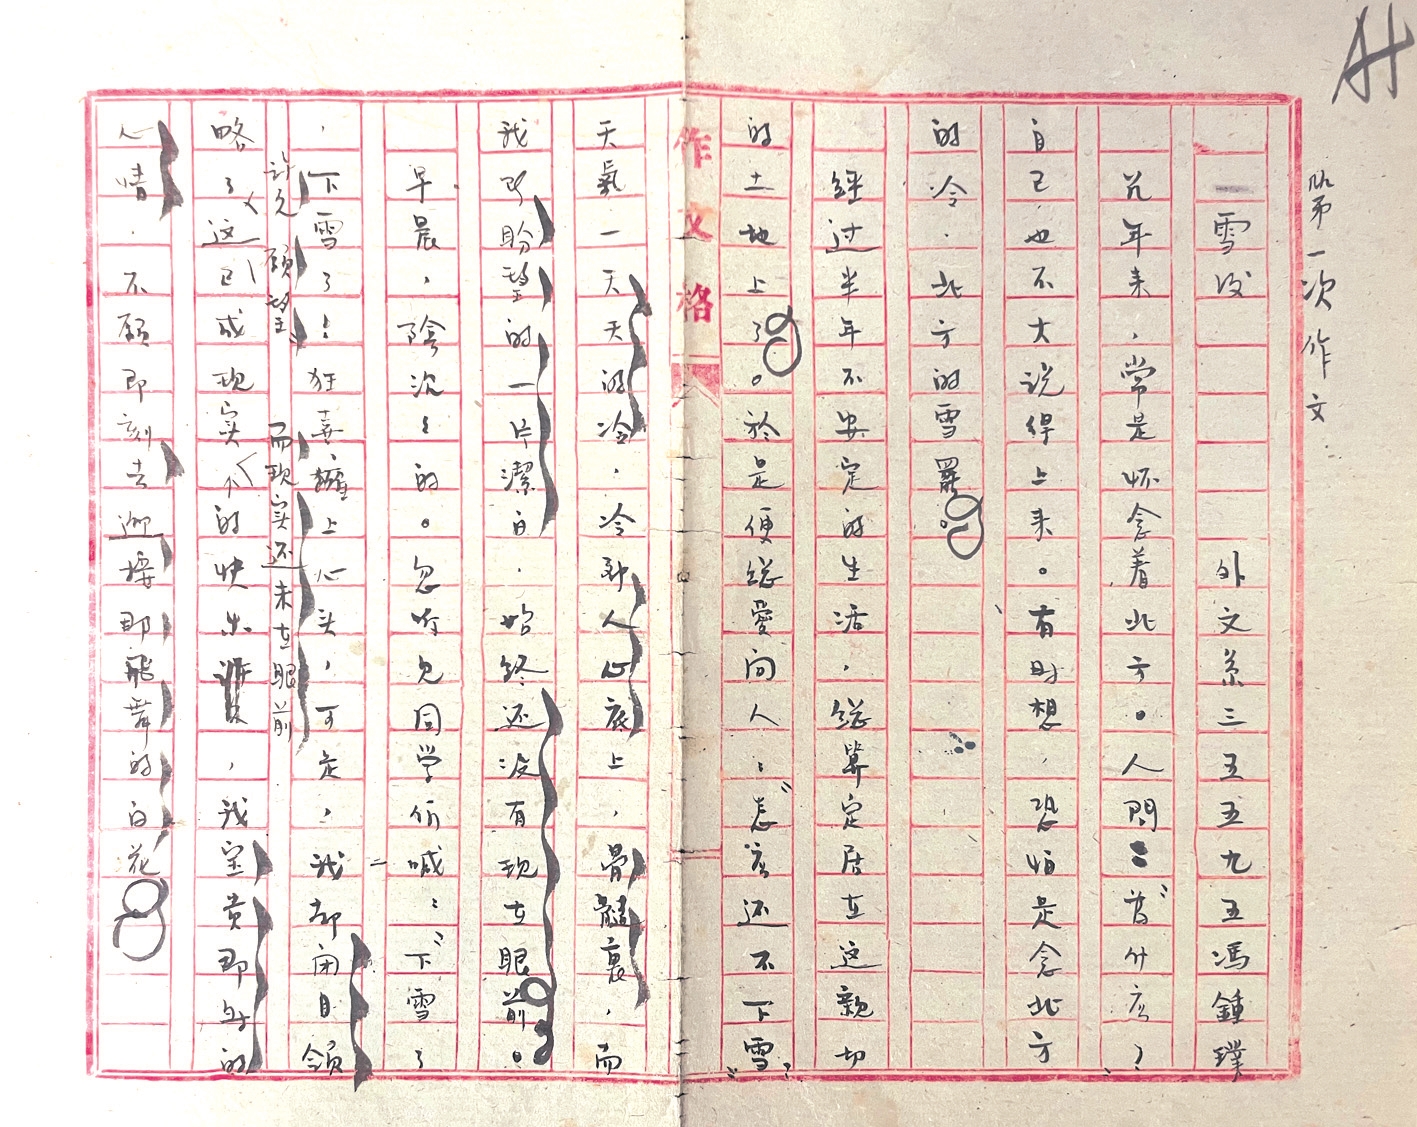 A+
第一次作文.
雪後 外文系三五五九五馮鍾璞
几年来，常是怀念着北方。人問：“為什么？”
自己也不大说得上来。有时想，恐怕是念北方
的冷，北方的雪罷。
經过半年不安定的生活，總算定居在这親切
的土地上了。於是便總愛问人：“怎么还不下雪？”
作文格
天氣一天天的冷，冷到人心底上，骨髓裏，而
我所盼望的一片潔白，始终还没有现在眼前。
早晨，陰沉沉的。忽听见同学们喊：“下雪了
，下雪了！”狂喜，擁上心头，可是，我却闭目領
許久 願望 而现实还未在眼前
略了这已成现实的快乐，我宝贵即的
心情，不願即刻去迎接那飛舞的白花。